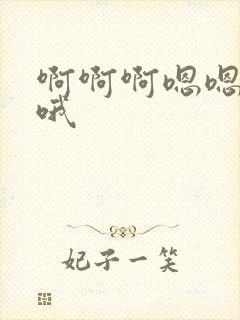 啊啊啊嗯嗯
哦
妃子一笑